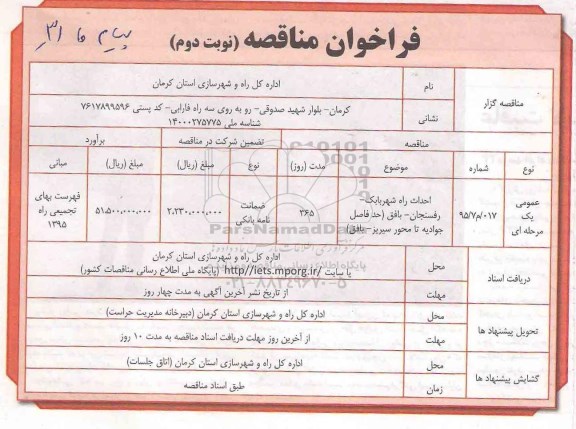 پیام ما ۳۱
فراخوان مناقصه (نوبت دوم)
مناقصه گزار
نام
اداره کل راه و شهرسازی استان کرمان
نشانی
کرمان- بلوار شهید صدوقی- رو به روی سه راه فارابی- کد پستی ۷۶۱۷۸۹۹۵۹۶
شناسه ملی ۱۴۰۰۰۲۷۵۷۷۵
مناقصه
تضمین شرکت در مناقصه
برآورد
نوع
شماره
موضوع
مدت (روز)
نوع
مبلغ (ریال)
مبلغ (ریال)
مبانی
عمومی
یک
مرحله ای
۹۵/۷/م/۰۱۷
احداث راه شهربابک-
رفسنجان- بافق (حد فاصل
جوادیه تا محور سیریز -بافق)
۳۶۵
ضمانت
نامه بانکی
۲.۲۳۰.۰۰۰.۰۰۰
۵۱.۵۰۰.۰۰۰.۰۰۰
فهرست بهای
تجمیعی راه
۱۳۹۵
ParsNamadData
دریافت اسناد
محل
اداره کل راه و شهرسازی استان کرمان
یا سایت http//iets.mporg.ir/ (پایگاه ملی اطلاع رسانی مناقصات کشور)
مهلت
از تاریخ نشر آخرین آگهی به مدت چهار روز
۰۲۱-۸۸۳۴۹۶۷۰-۵
تحویل پیشنهاد ها
محل
اداره کل راه و شهرسازی استان کرمان (دبیرخانه مدیریت حراست)
مهلت
از آخرین روز مهلت دریافت اسناد مناقصه به مدت ۱۰ روز
گشایش پیشنهاد ها
محل
اداره کل راه و شهرسازی استان کرمان (اتاق جلسات)
زمان
طبق اسناد مناقصه